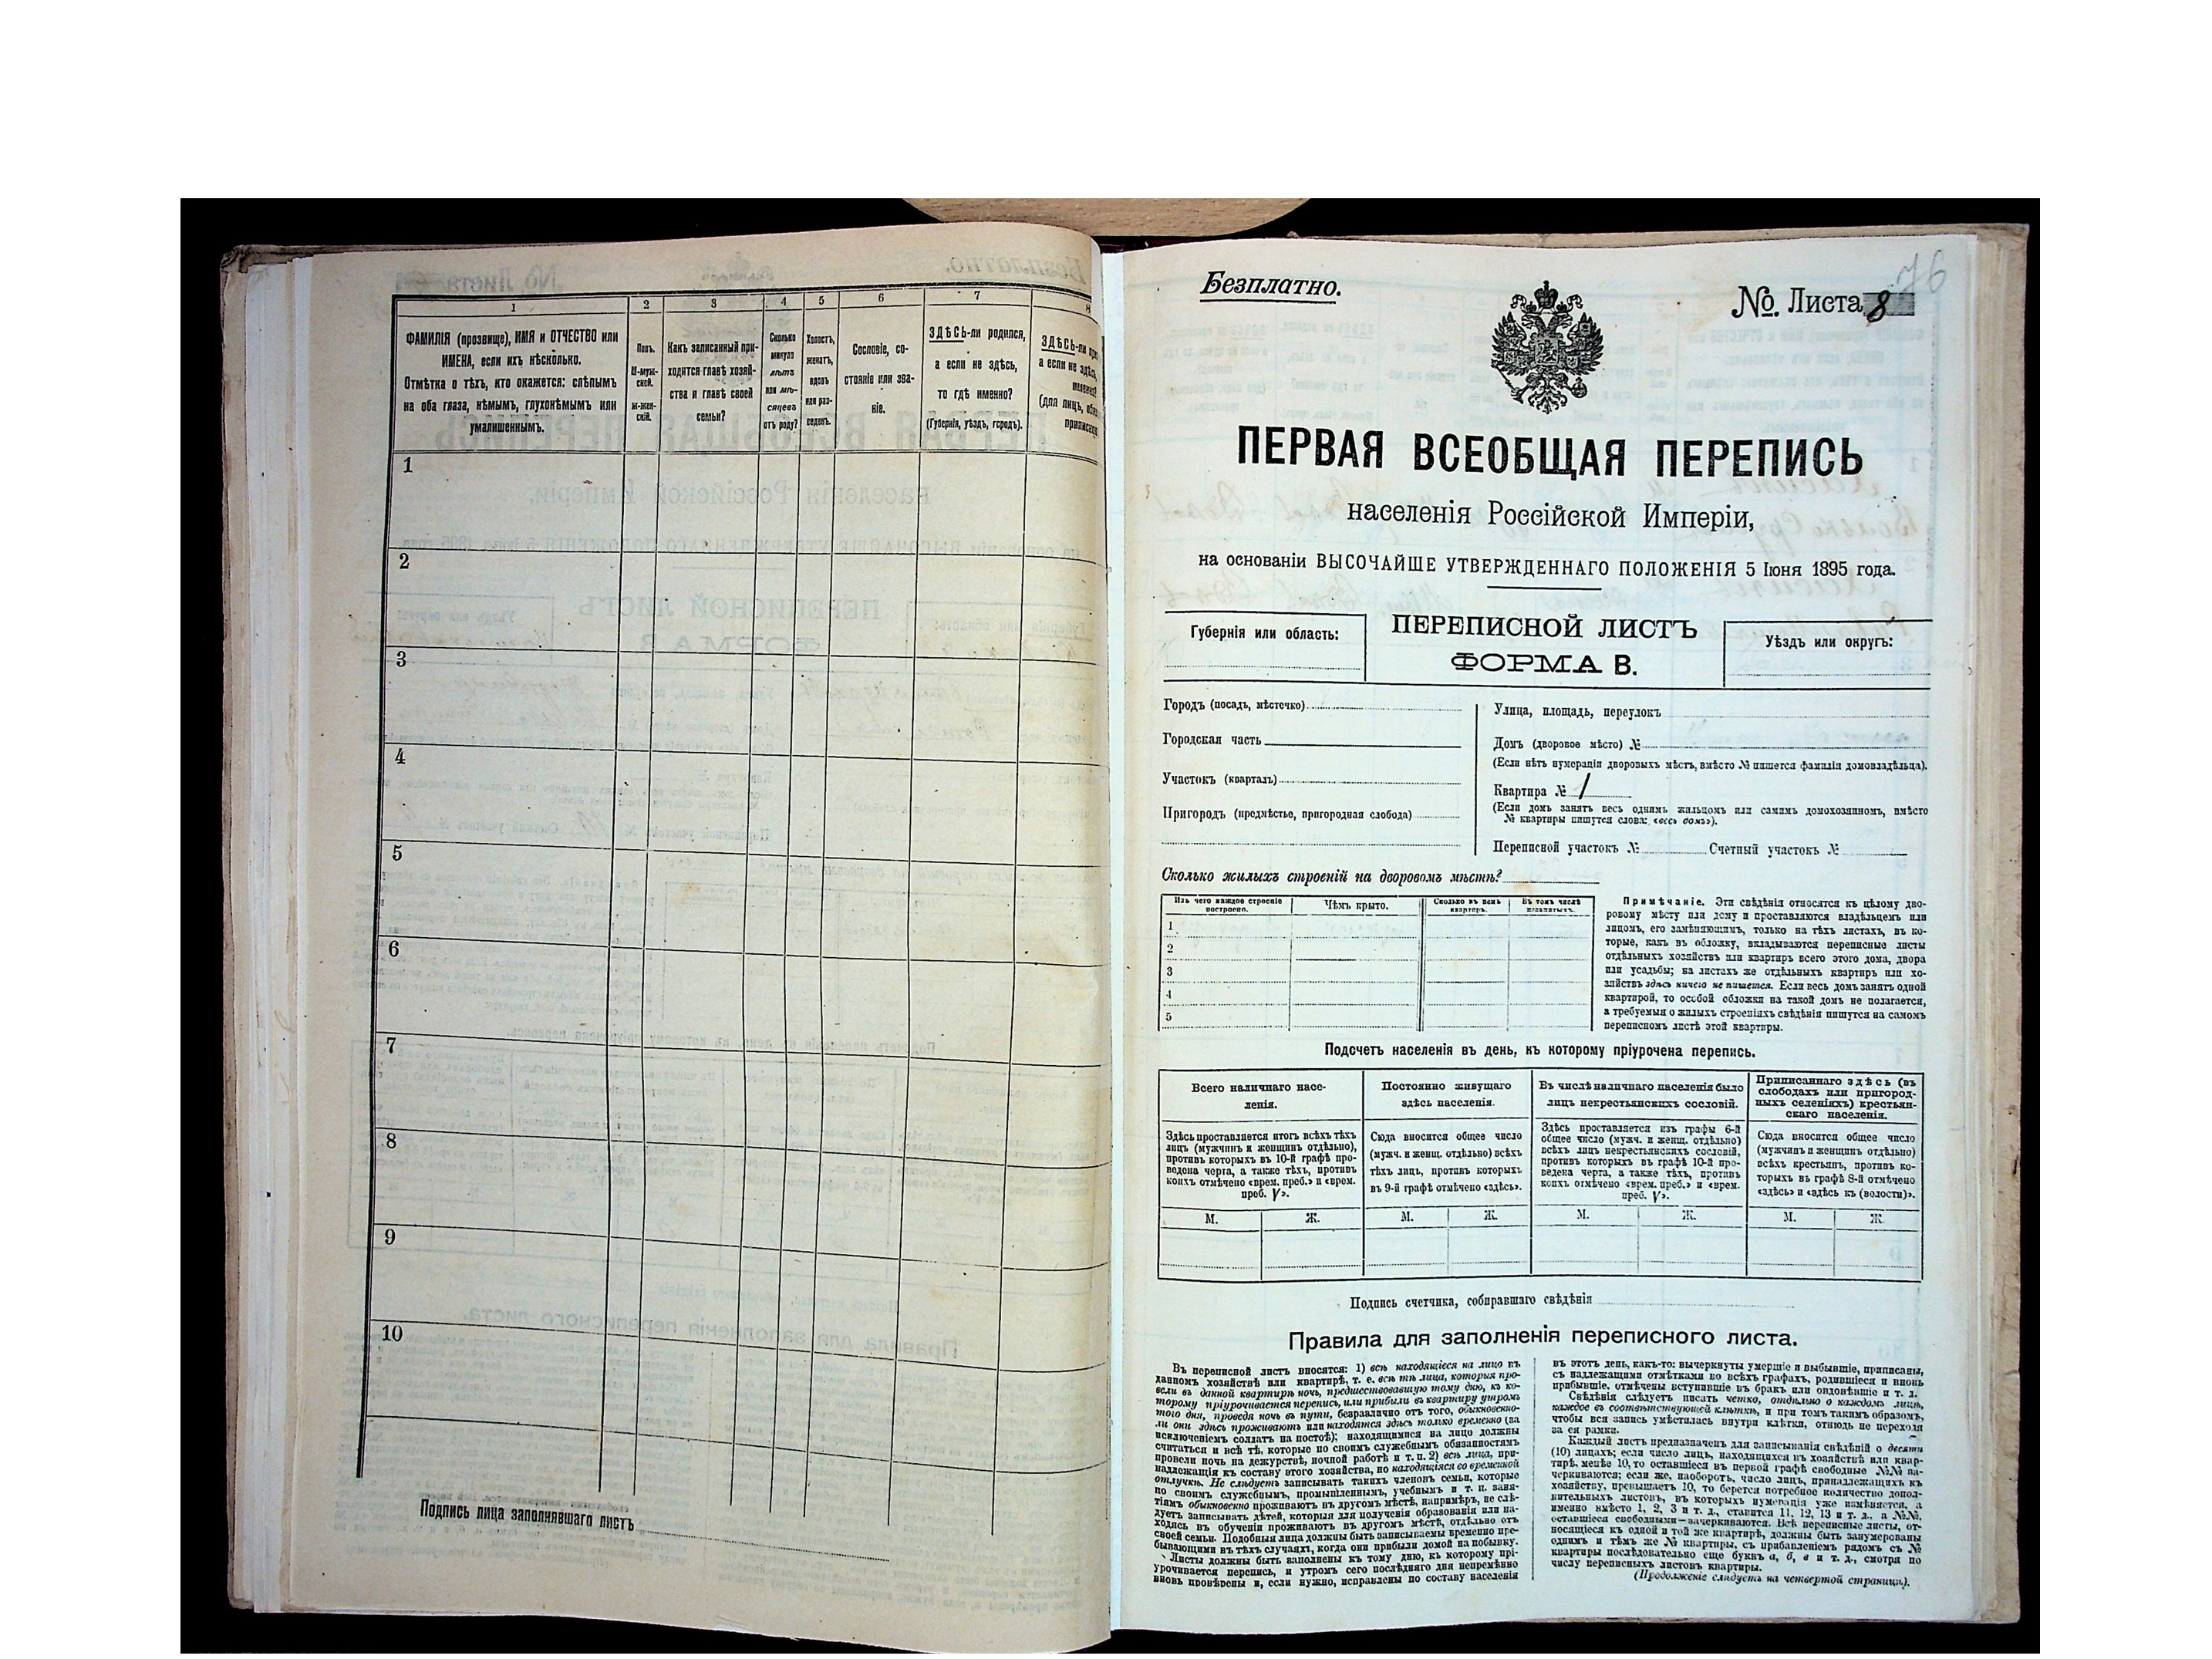 1 2 3 4 5 6 7 8
ФАМИЛІЯ (прозвище), ИМЯ и ОТЧЕСТВО или
ИМЕНА, если ихъ нѣсколько.
Отмѣтка о тѣхъ, кто окажется: слѣпымъ
на оба глаза, нѣмымъ, глухонѣмымъ или
умалишеннымъ.
Полъ.
М-муж-
ской.
Ж-жен-
скій.
Какъ записанный при-
ходится главѣ хозяй-
ства и главѣ своей
семьи?
Сколько
минуло
лѣтъ
или мѣ-
сяцевъ
отъ роду?
Холостъ,
женатъ,
вдовъ
или раз-
веденъ.
Сословіе, со-
стояніе или зва-
ніе.
ЗДѢСЬ-ли родился,
а если не здѣсь,
то гдѣ именно?
(Губернія, уѣздъ, городъ).
ЗДѢСЬ-ли
а если не здѣсь,
(для лицъ,
1
2
3
4
5
6
7
8
9
10
Подпись лица заполнявшаго листъ
76
Безплатно.
№ Листа 8
ПЕРВАЯ ВСЕОБЩАЯ ПЕРЕПИСЬ
населенія Россійской Имперіи,
на основаніи ВЫСОЧАЙШЕ УТВЕРЖДЕННАГО ПОЛОЖЕНІЯ 5 Іюня 1895 года.
Губернія или область:
ПЕРЕПИСНОЙ ЛИСТЪ
ФОРМА В.
Уѣздъ или округъ:
Городъ (посадъ, мѣстечко)
Городская часть
Участокъ (кварталъ)
Пригородъ (предмѣстье, пригородная слобода)
Улица, площадь, переулокъ
Домъ (дворовое мѣсто) №
(Если нѣтъ нумераціи дворовыхъ мѣстъ, вмѣсто № пишется фамилія домовладѣльца).
Квартира № 1
(Если домъ занятъ весь однимъ жильцомъ или самимъ домохозяиномъ, вмѣсто
№ квартиры пишутся слова: «весь домъ»).
Переписной участокъ № Счетный участокъ №
Сколько жилыхъ строеній на дворовомъ мѣстѣ?
Изъ чего каждое строеніе
построено.
Чѣмъ крыто.
Сколько въ немъ
квартиръ.
Въ томъ числѣ
незанятыхъ.
1
2
3
4
5
Примѣчаніе. Эти свѣдѣнія относятся къ цѣлому дво-
ровому мѣсту или дому и проставляются владѣльцемъ или
лицомъ, его замѣняющимъ, только на тѣхъ листахъ, въ ко-
торые, какъ въ обложку, вкладываются переписные листы
отдѣльныхъ хозяйствъ или квартиръ всего этого дома, двора
или усадьбы; на листахъ же отдѣльныхъ квартиръ или хо-
зяйствъ здѣсь ничего не пишется. Если весь домъ занятъ одной
квартирой, то особой обложки на такой домъ не полагается,
а требуемыя о жилыхъ строеніяхъ свѣдѣнія пишутся на самомъ
переписномъ листѣ этой квартиры.
Подсчетъ населенія въ день, къ которому пріурочена перепись.
Всего наличнаго насе-
ленія.
Постоянно живущаго
здѣсь населенія.
Въ числѣ наличнаго населенія было
лицъ некрестьянскихъ сословій.
Приписаннаго здѣсь (въ
слободахъ или пригород-
ныхъ селеніяхъ) крестьян-
скаго населенія.
Здѣсь проставляется итогъ всѣхъ тѣхъ
лицъ (мужчинъ и женщинъ отдѣльно),
противъ которыхъ въ 10-й графѣ про-
ведена черта, а также тѣхъ, противъ
коихъ отмѣчено «врем. преб.» и «врем.
преб. V».
Сюда вносится общее число
(мужч. и женщ. отдѣльно) всѣхъ
тѣхъ лицъ, противъ которыхъ
въ 9-й графѣ отмѣчено «здѣсь».
Здѣсь проставляется изъ графы 6-й
общее число (мужч. и женщ. отдѣльно)
всѣхъ лицъ некрестьянскихъ сословій,
противъ которыхъ въ графѣ 10-й про-
ведена черта, а также тѣхъ, противъ
коихъ отмѣчено «врем. преб.» и «врем.
преб. V».
Сюда вносится общее число
(мужчинъ и женщинъ отдѣльно)
всѣхъ крестьянъ, противъ ко-
торыхъ въ графѣ 8-й отмѣчено
«здѣсь» и «здѣсь къ (волости)».
М. Ж. М. Ж. М. Ж. М. Ж.
Подпись счетчика, собиравшаго свѣдѣнія
Правила для заполненія переписного листа.
Въ переписной листъ вносятся: 1) всѣ находящіеся на лицо въ
данномъ хозяйствѣ или квартирѣ, т. е. всѣ тѣ лица, которыя про-
вели въ данной квартирѣ ночь, предшествовавшую тому дню, къ ко-
торому пріурочивается перепись, или прибыли въ квартиру утромъ
того дня, проведя ночь въ пути, безразлично отъ того, обыкновенно-
ли они здѣсь проживаютъ или находятся здѣсь только временно (за
исключеніемъ солдатъ на постоѣ); находящимися на лицо должны
считаться и всѣ тѣ, которые по своимъ служебнымъ обязанностямъ
провели ночь на дежурствѣ, ночной работѣ и т. п. 2) всѣ лица, при-
надлежащія къ составу этого хозяйства, но находящіяся во временной
отлучкѣ. Не слѣдуетъ записывать такихъ членовъ семьи, которые
по своимъ служебнымъ, промышленнымъ, учебнымъ и т. п. заня-
тіямъ обыкновенно проживаютъ въ другомъ мѣстѣ, напримѣръ, не слѣ-
дуетъ записывать дѣтей, которыя для полученія образованія или на-
ходясь въ обученіи проживаютъ въ другомъ мѣстѣ, отдѣльно отъ
своей семьи. Подобныя лица должны быть записываемы временно пре-
бывающими въ тѣхъ случаяхъ, когда они прибыли домой на побывку.
Листы должны быть заполнены къ тому дню, къ которому прі-
урочивается перепись, и утромъ сего послѣдняго дня непремѣнно
вновь провѣрены и, если нужно, исправлены по составу населенія
въ этотъ день, какъ-то: вычеркнуты умершіе и выбывшіе, приписаны,
съ надлежащими отмѣтками во всѣхъ графахъ, родившіеся и вновь
прибывшіе, отмѣчены вступившіе въ бракъ или овдовѣвшіе и т. д.
Свѣдѣнія слѣдуетъ писать четко, отдѣльно о каждомъ лицѣ,
каждое въ соотвѣтствующей клѣткѣ, и при томъ такимъ образомъ,
чтобы вся запись умѣстилась внутри клѣтки, отнюдь не переходя
за ея рамки.
Каждый листъ предназначенъ для записыванія свѣдѣній о десяти
(10) лицахъ; если число лицъ, находящихся въ хозяйствѣ или квар-
тирѣ, менѣе 10, то оставшіеся въ первой графѣ свободные №№ за-
черкиваются; если же, наоборотъ, число лицъ, принадлежащихъ къ
хозяйству, превышаетъ 10, то берется потребное количество допол-
нительныхъ листовъ, въ которыхъ нумерація уже измѣняется, а
именно вмѣсто 1, 2, 3 и т. д., ставится 11, 12, 13 и т. д., а №№,
оставшіеся свободными—зачеркиваются. Всѣ переписные листы, от-
носящіеся къ одной и той же квартирѣ, должны быть занумерованы
однимъ и тѣмъ же № квартиры, съ прибавленіемъ рядомъ съ №
квартиры послѣдовательно еще буквъ а, б, в и т. д., смотря по
числу переписныхъ листовъ квартиры.
(Продолженіе слѣдуетъ на четвертой страницѣ).